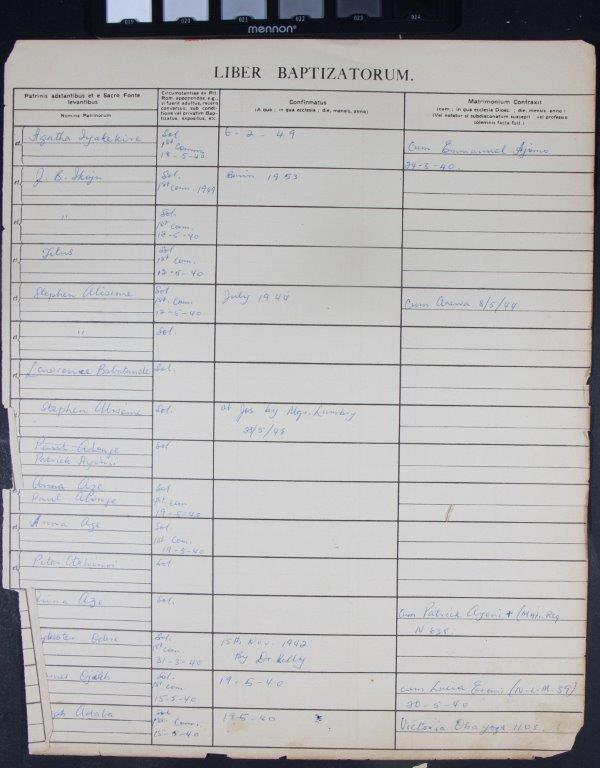 019 020 021 022 023 024
mennon
LIBER BAPTIZATORUM.
Patrinis adstantibus et e Sacro Fonte
levantibus
Nomina Patrinorum
Circumstantiae ex Rit.
Rom. apponendae, e.g.,
si fuerit adultus, recens
conversus, sub condi-
tione vel privatim Bap-
tizatus, expositus, etc.
Confirmatus
(A quo ; in qua ecclesia ; die, mensis, anno)
Matrimonium Contraxit
(cum ; in qua ecclesia Dioec. ; die, mensis, anno)
(Vel notetur si subdiaconatum suscepit vel professio
solemnis facta fuit.)
Agatha
Sol
1st Comm
12-5-40
6-2-49
Cum Emmanuel Ajomo
29-5-40.
J. B. Ikoju
Sol.
1st Com. 1949
Benin 1953
"
Sol.
1st Com.
12-5-40
Titus
Sol
1st Com.
12-5-40
Stephen
Sol
1st. Com.
12-5-40
July 1944
Cum 8/5/44
"
Sol.
Lawrence Babatunde
Sol.
Stephen
Sol.
at Jos by Mgr. Lumley
29/5/48
Alonge
Patrick
Sol
Anna Aze
Paul Alonge
Sol
1st Com
19-5-40
Anna Aze
Sol.
1st Com.
19-5-40
Peter
Sol
Aze
Sol.
Cum Patrick Ajoni + (Matr. Reg
N 635.
Sol.
1st Com.
31-3-40
15th Nov. 1942
By Dr Kelly
Sol.
1st Com
15-5-40
19-5-40
cum Lucia (N-L-M. 59)
20-5-40
Adaba
Sol
1st. Com.
15-5-40
19-5-40
Victoria 1105.